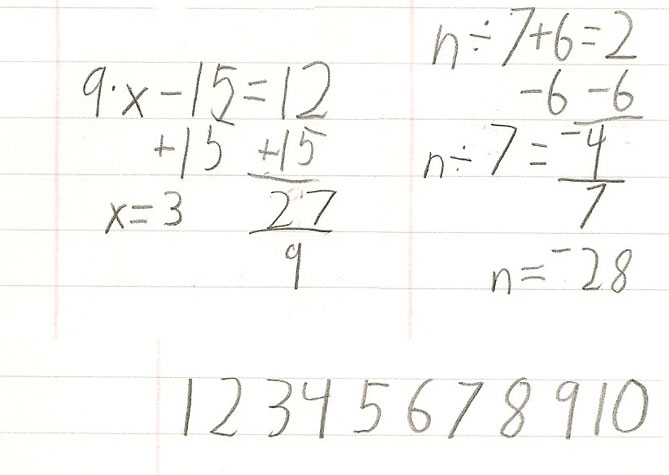 9·x-15=12
+15 +15
x=3 27
9
n÷7+6=2
-6 -6
n÷7=⁻4
7
n=⁻28
1 2 3 4 5 6 7 8 9 10